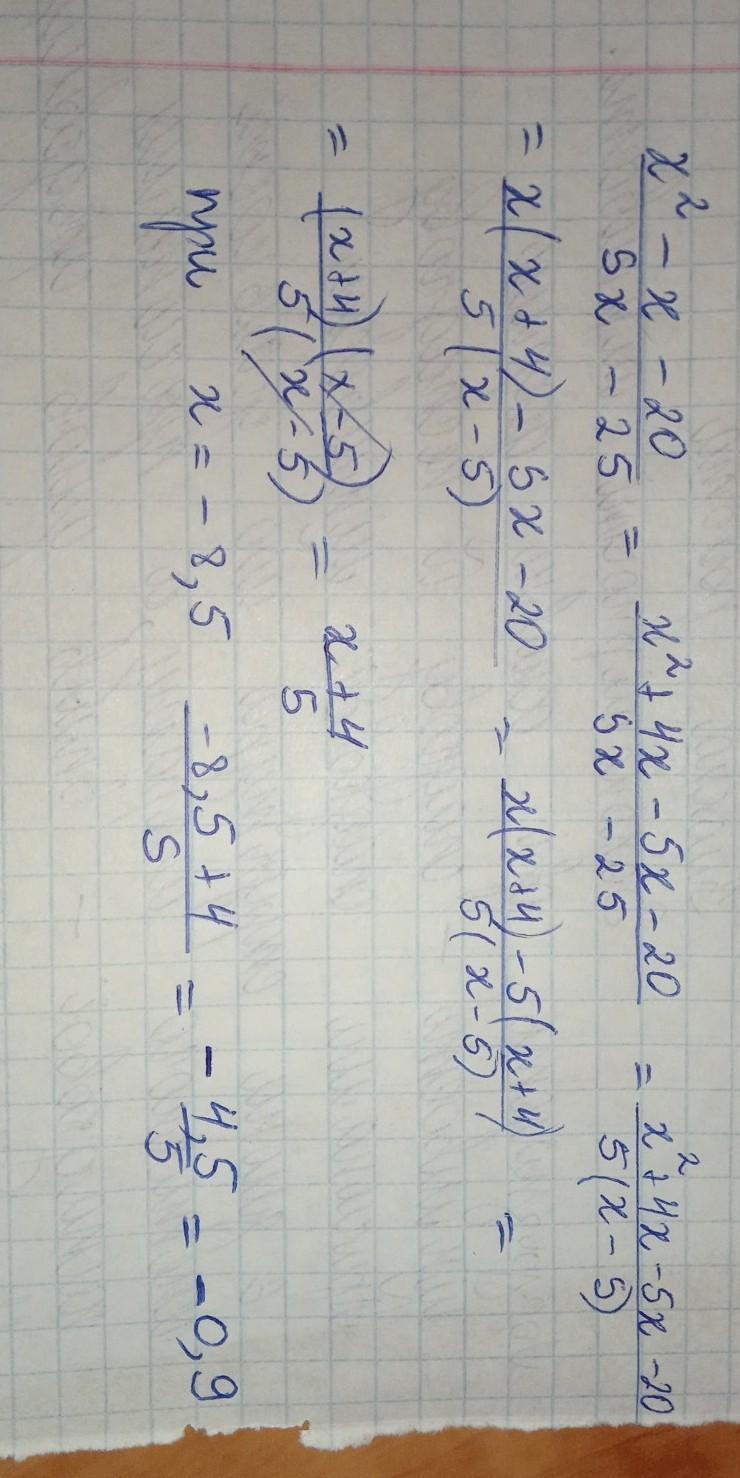 (x² - x - 20)/(5x - 25) = (x² + 4x - 5x - 20)/(5x - 25) = (x² + 4x - 5x - 20)/(5(x - 5))
= (x(x + 4) - 5x - 20)/(5(x - 5)) = (x(x + 4) - 5(x + 4))/(5(x - 5)) =
= ((x + 4)(x - 5))/(5(x - 5)) = (x + 4)/5
при x = - 8,5 (-8,5 + 4)/5 = - 4,5/5 = - 0,9